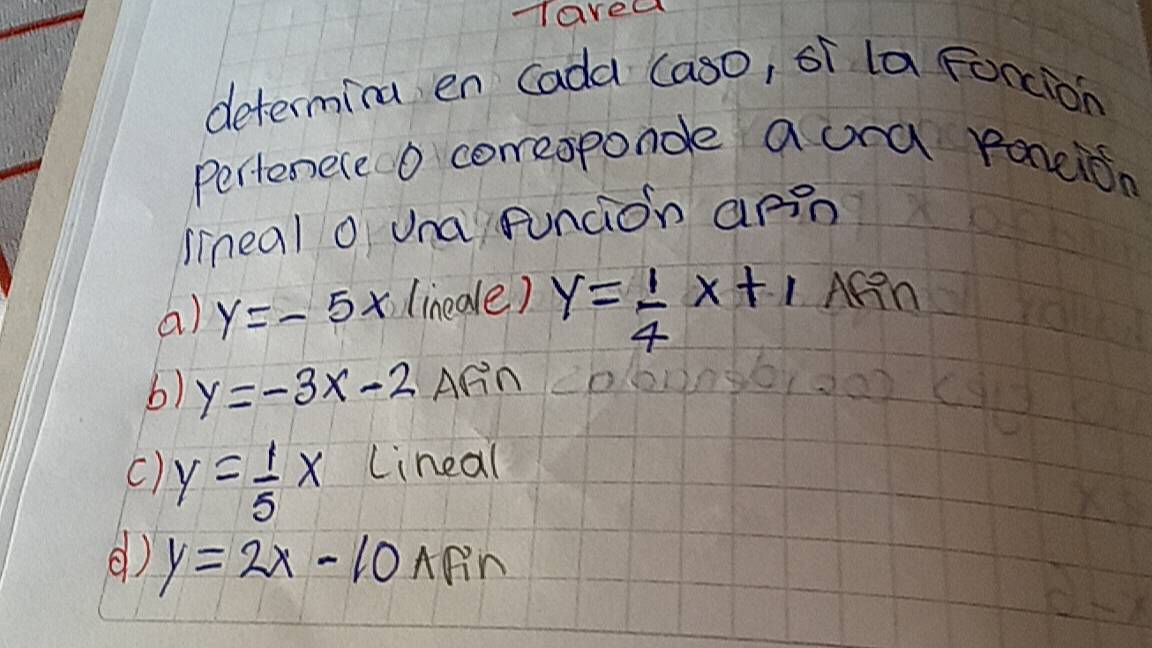 Tarea
determina en cada caso, si la Foncion
pertenece o corresponde a una Fonción
lineal o una función afin
a) y = - 5x lineal e) y = 1/4 x + 1 Afin
b) y = -3x - 2 Afin
c) y = 1/5 x Lineal
d) y = 2x - 10 Afin